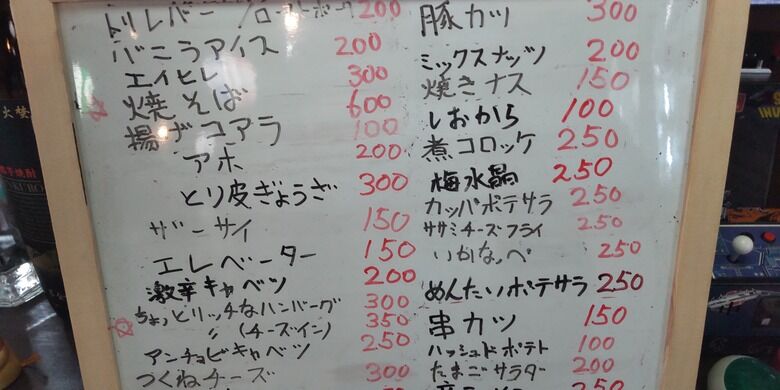 トリレバー/ローストポーク 200
バニラアイス 200
エイヒレ 300
焼そば 600
揚げコアラ 100
アホ 200
とり皮ぎょうざ 300
ザーサイ 150
エレベーター 150
激辛キャベツ 200
ちょっとリッチなハンバーグ 300
〃 (チーズイン) 350
アンチョビキャベツ 250
つくねチーズ 300
豚カツ 300
ミックスナッツ 200
焼きナス 150
しおから 100
煮コロッケ 250
梅水晶 250
カッパポテサラ 250
ササミチーズフライ 250
いかなっぺ 250
めんたいポテサラ 250
串カツ 150
ハッシュドポテト 100
たまごサラダ 200
250
火
焼酎